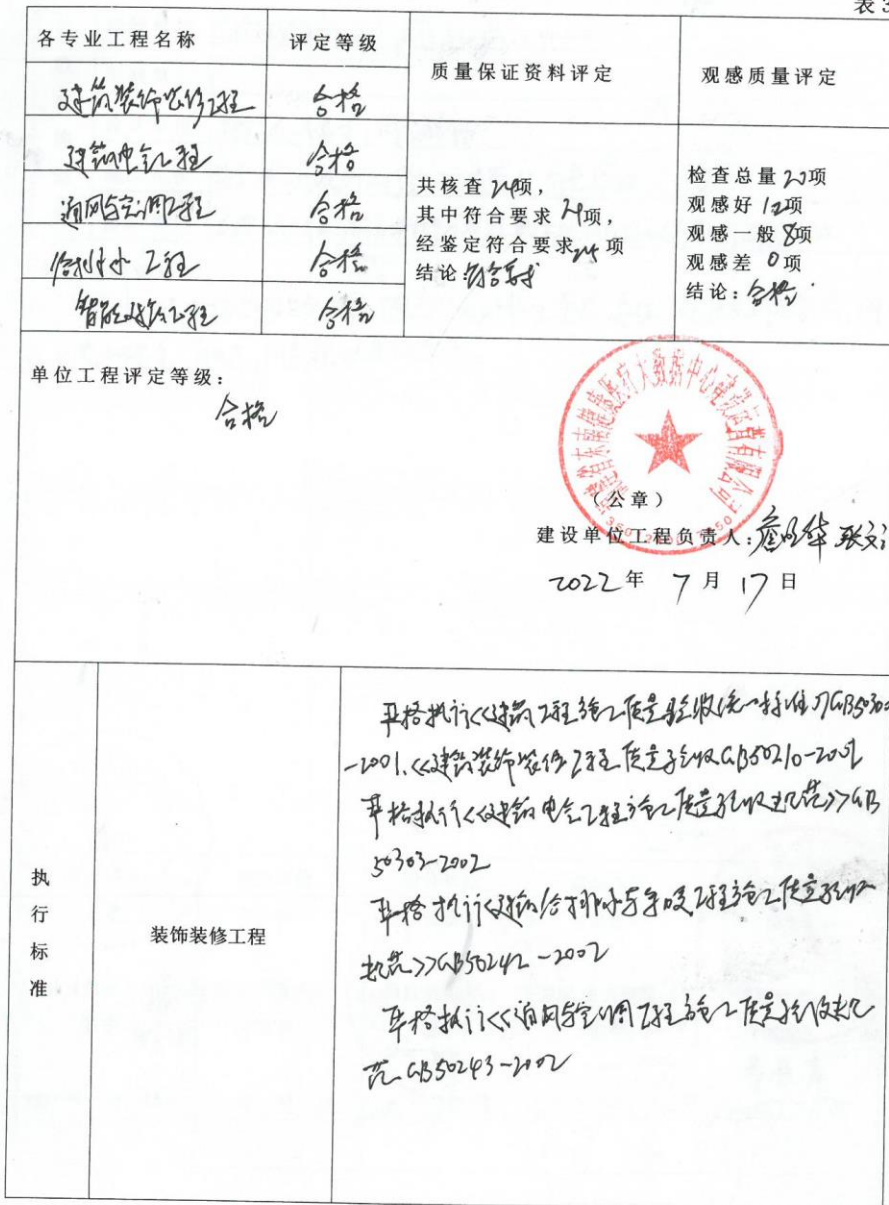 表3
各专业工程名称 评定等级 质量保证资料评定 观感质量评定
建筑装饰装修工程 合格
建筑电气工程 合格
通风与空调工程 合格
给排水工程 合格
智能建筑工程 合格
共核查24项,
其中符合要求24项,
经鉴定符合要求24项
结论:符合要求
检查总量20项
观感好12项
观感一般8项
观感差0项
结论:合格
单位工程评定等级:
合格
福建省东南健康医疗大数据中心建设运营有限公司
(公章)
建设单位工程负责人:
2022年7月17日
执行标准
装饰装修工程
严格执行<<建筑工程施工质量验收统一标准>>GB50300
-2001.<<建筑装饰装修工程质量验收GB50210-2001
严格执行<<建筑电气工程施工质量验收规范>>GB
50303-2002
严格执行<<建筑给排水与采暖工程施工质量验收
规范>>GB50242-2002
严格执行<<通风与空调工程施工质量验收规
范GB50243-2002